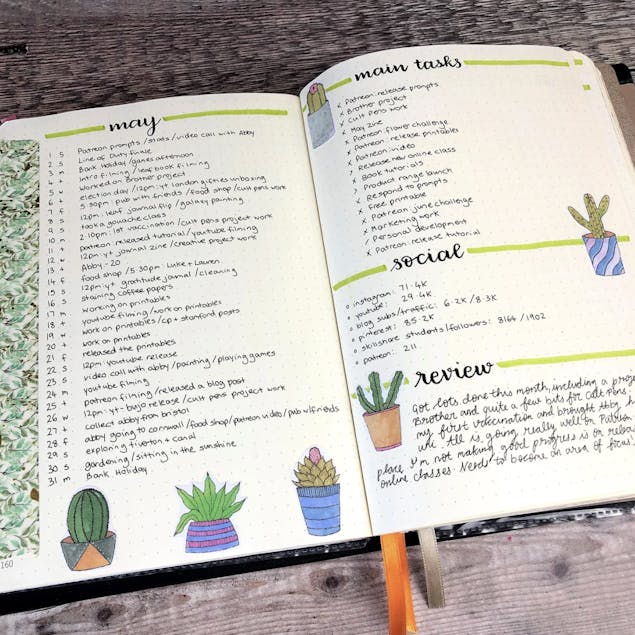 may
1 s Patreon prompts / stats / video call with Abby
2 s Line of Duty finale
3 m Bank holiday / games afternoon
4 t Intro filming / leaf book filming
5 w Worked on Brother project
6 t election day / 12pm: yt london gifties unboxing
7 f 5.30pm: pub with friends / food shop / cult pens work
8 s 12pm: leaf journal flip / galaxy painting
9 s took a gouache class
10 m 2.10pm: 1st vaccination / cult pens project work
11 t patreon released tutorial / youtube filming
12 w 12pm: yt journal zine / creative project work
13 t Abby - 20
14 f food shop / 5.30pm: Luke + Lauren
15 s 12pm: yt gratitude journal / cleaning
16 s staining coffee papers
17 m working on printables
18 t youtube filming / work on printables
19 w work on printables / cp + stamford posts
20 t work on printables
21 f released the printables
22 s 12pm: youtube release
23 s video call with abby / painting / playing games
24 m youtube filming
25 t patreon filming / released a blog post
26 w 12pm: yt - bujo release / cult pens project work
27 t collect abby from bristol
28 f abby going to cornwall / food shop / patreon video / pub w/ friends
29 s exploring tiverton + canal
30 s gardening / sitting in the sunshine
31 m Bank Holiday
160
main tasks
x Patreon: release prompts
x Brother project
x Cult Pens work
x May zine
x Patreon flower challenge
x Patreon: release printables
x Patreon: video
x Release new online class
> Book tutorials
> Product range launch
x Respond to prompts
x Free printable
x Patreon: june challenge
x Marketing work
/ Personal development
x Patreon: release tutorial
social
o instagram: 71.4k
o youtube: 29.4k
o blog subs/traffic: 6.2k / 8.3k
o pinterest: 85.2k
o skillshare students/followers: 8164 / 1902
o patreon: 211
review
Got lots done this month, including a project
Brother and quite a few bits for Cult Pens.
my first vaccination and brought Abby h
uni. All is going really well on Patreon
place I'm not making good progress is on releas
online classes. Need to become an area of focus